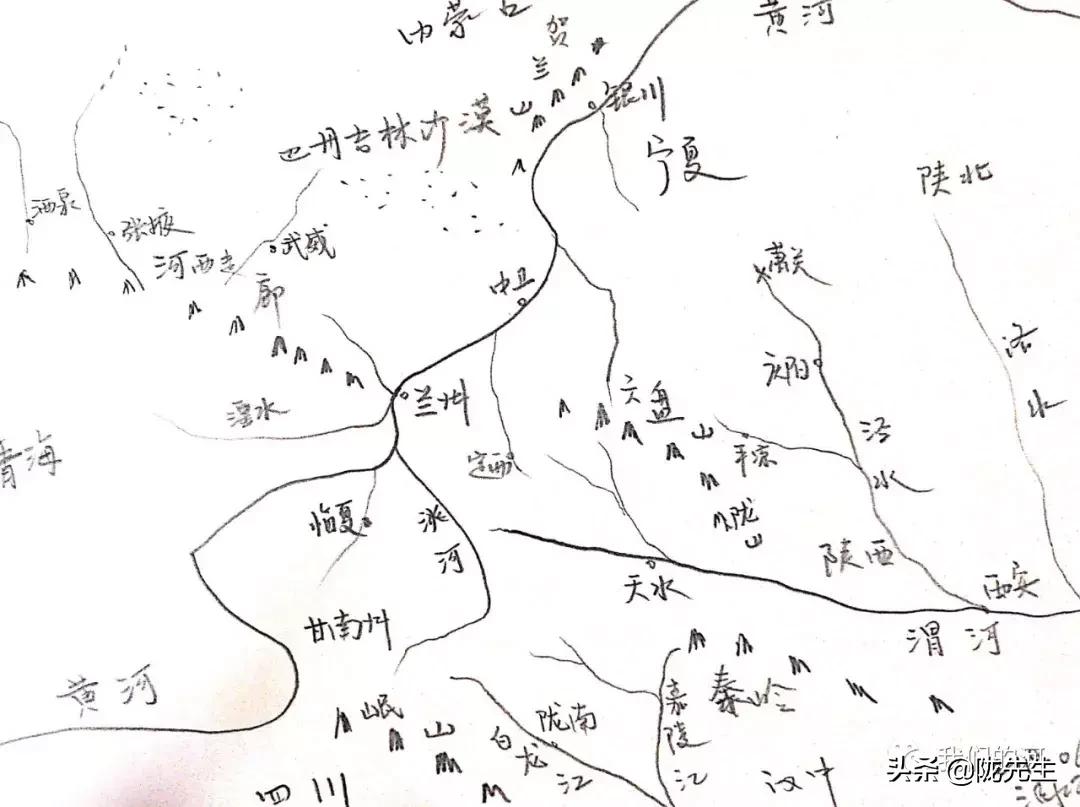 内蒙古
贺兰山
黄河
银川
巴丹吉林沙漠
宁夏
陕北
酒泉
张掖
武威
河西走廊
萧关
中卫
洛水
庆阳
兰州
湟水
六盘山
泾水
平凉
青海
定西
临夏
洮河
陇山
陕西
天水
西安
甘南州
渭河
黄河
岷山
陇南
白龙江
嘉陵江
秦岭
四川
汉中
头条 @陇先生